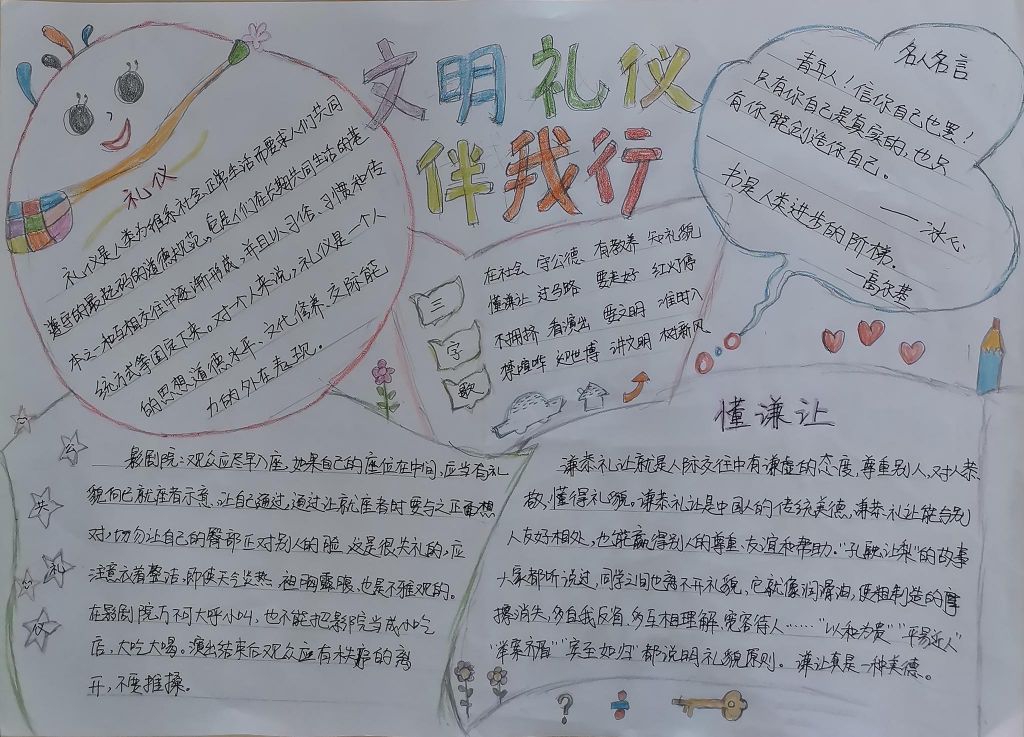 文明礼仪
伴我行
礼仪
礼仪是人类为维系社会正常生活而要求人们共同
遵守的最起码的道德规范,它是人们在长期共同生活的基
本之一和互相交往中逐渐形成,并且以习俗、习惯和传
统方式等固定下来。对一个人来说,礼仪是一个人
的思想道德水平、文化修养、交际能
力的外在表现。
三
字
歌
在社会 守公德 有教养 知礼貌
懂谦让 过马路 要走好 红灯停
不拥挤 看演出 要文明 准时入
禁喧哗 迎世博 讲文明 树新风
名人名言
青年人!信你自己也罢!
只有你自己是真实的,也只
有你能创造你自己。
——冰心
书是人类进步的阶梯。
—高尔基
公
共
礼
仪
影剧院:观众应尽早入座,如果自己的座位在中间,应当有礼
貌向已就座者示意,让自己通过,通过让就座者时要与之正面想
对,切勿让自己的臀部正对别人的脸,这是很失礼的,应
注意衣着整洁,即使天气炎热,袒胸露腹,也是不雅观的。
在影剧院万不可大呼小叫,也不能把影院当成小吃
店,大吃大喝。演出结束后观众应有秩序的离
开,不要推搡。
懂谦让
谦恭礼让就是人际交往中有谦虚的态度,尊重别人,对人恭
敬,懂得礼貌。谦恭礼让是中国人的传统美德,谦恭礼让能与别
人友好相处,也能赢得别人的尊重、友谊和帮助。"孔融让梨"的故事
大家都听说过,同学之间也离不开礼貌,它就像润滑油,使粗制造的摩
擦消失,多自我反省,多互相理解、宽容待人……"以和为贵""平易近人"
"举案齐眉""宾至如归"都说明礼貌原则。谦让真是一种美德。